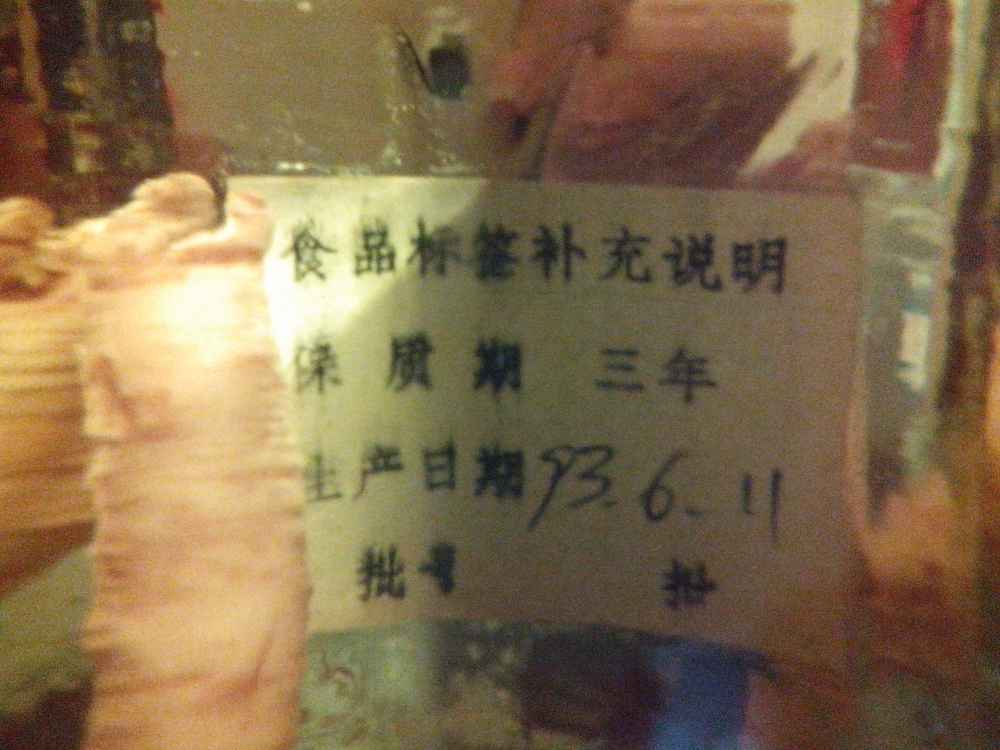 食品标签补充说明
保质期 三年
生产日期 93.6.11
批号 批